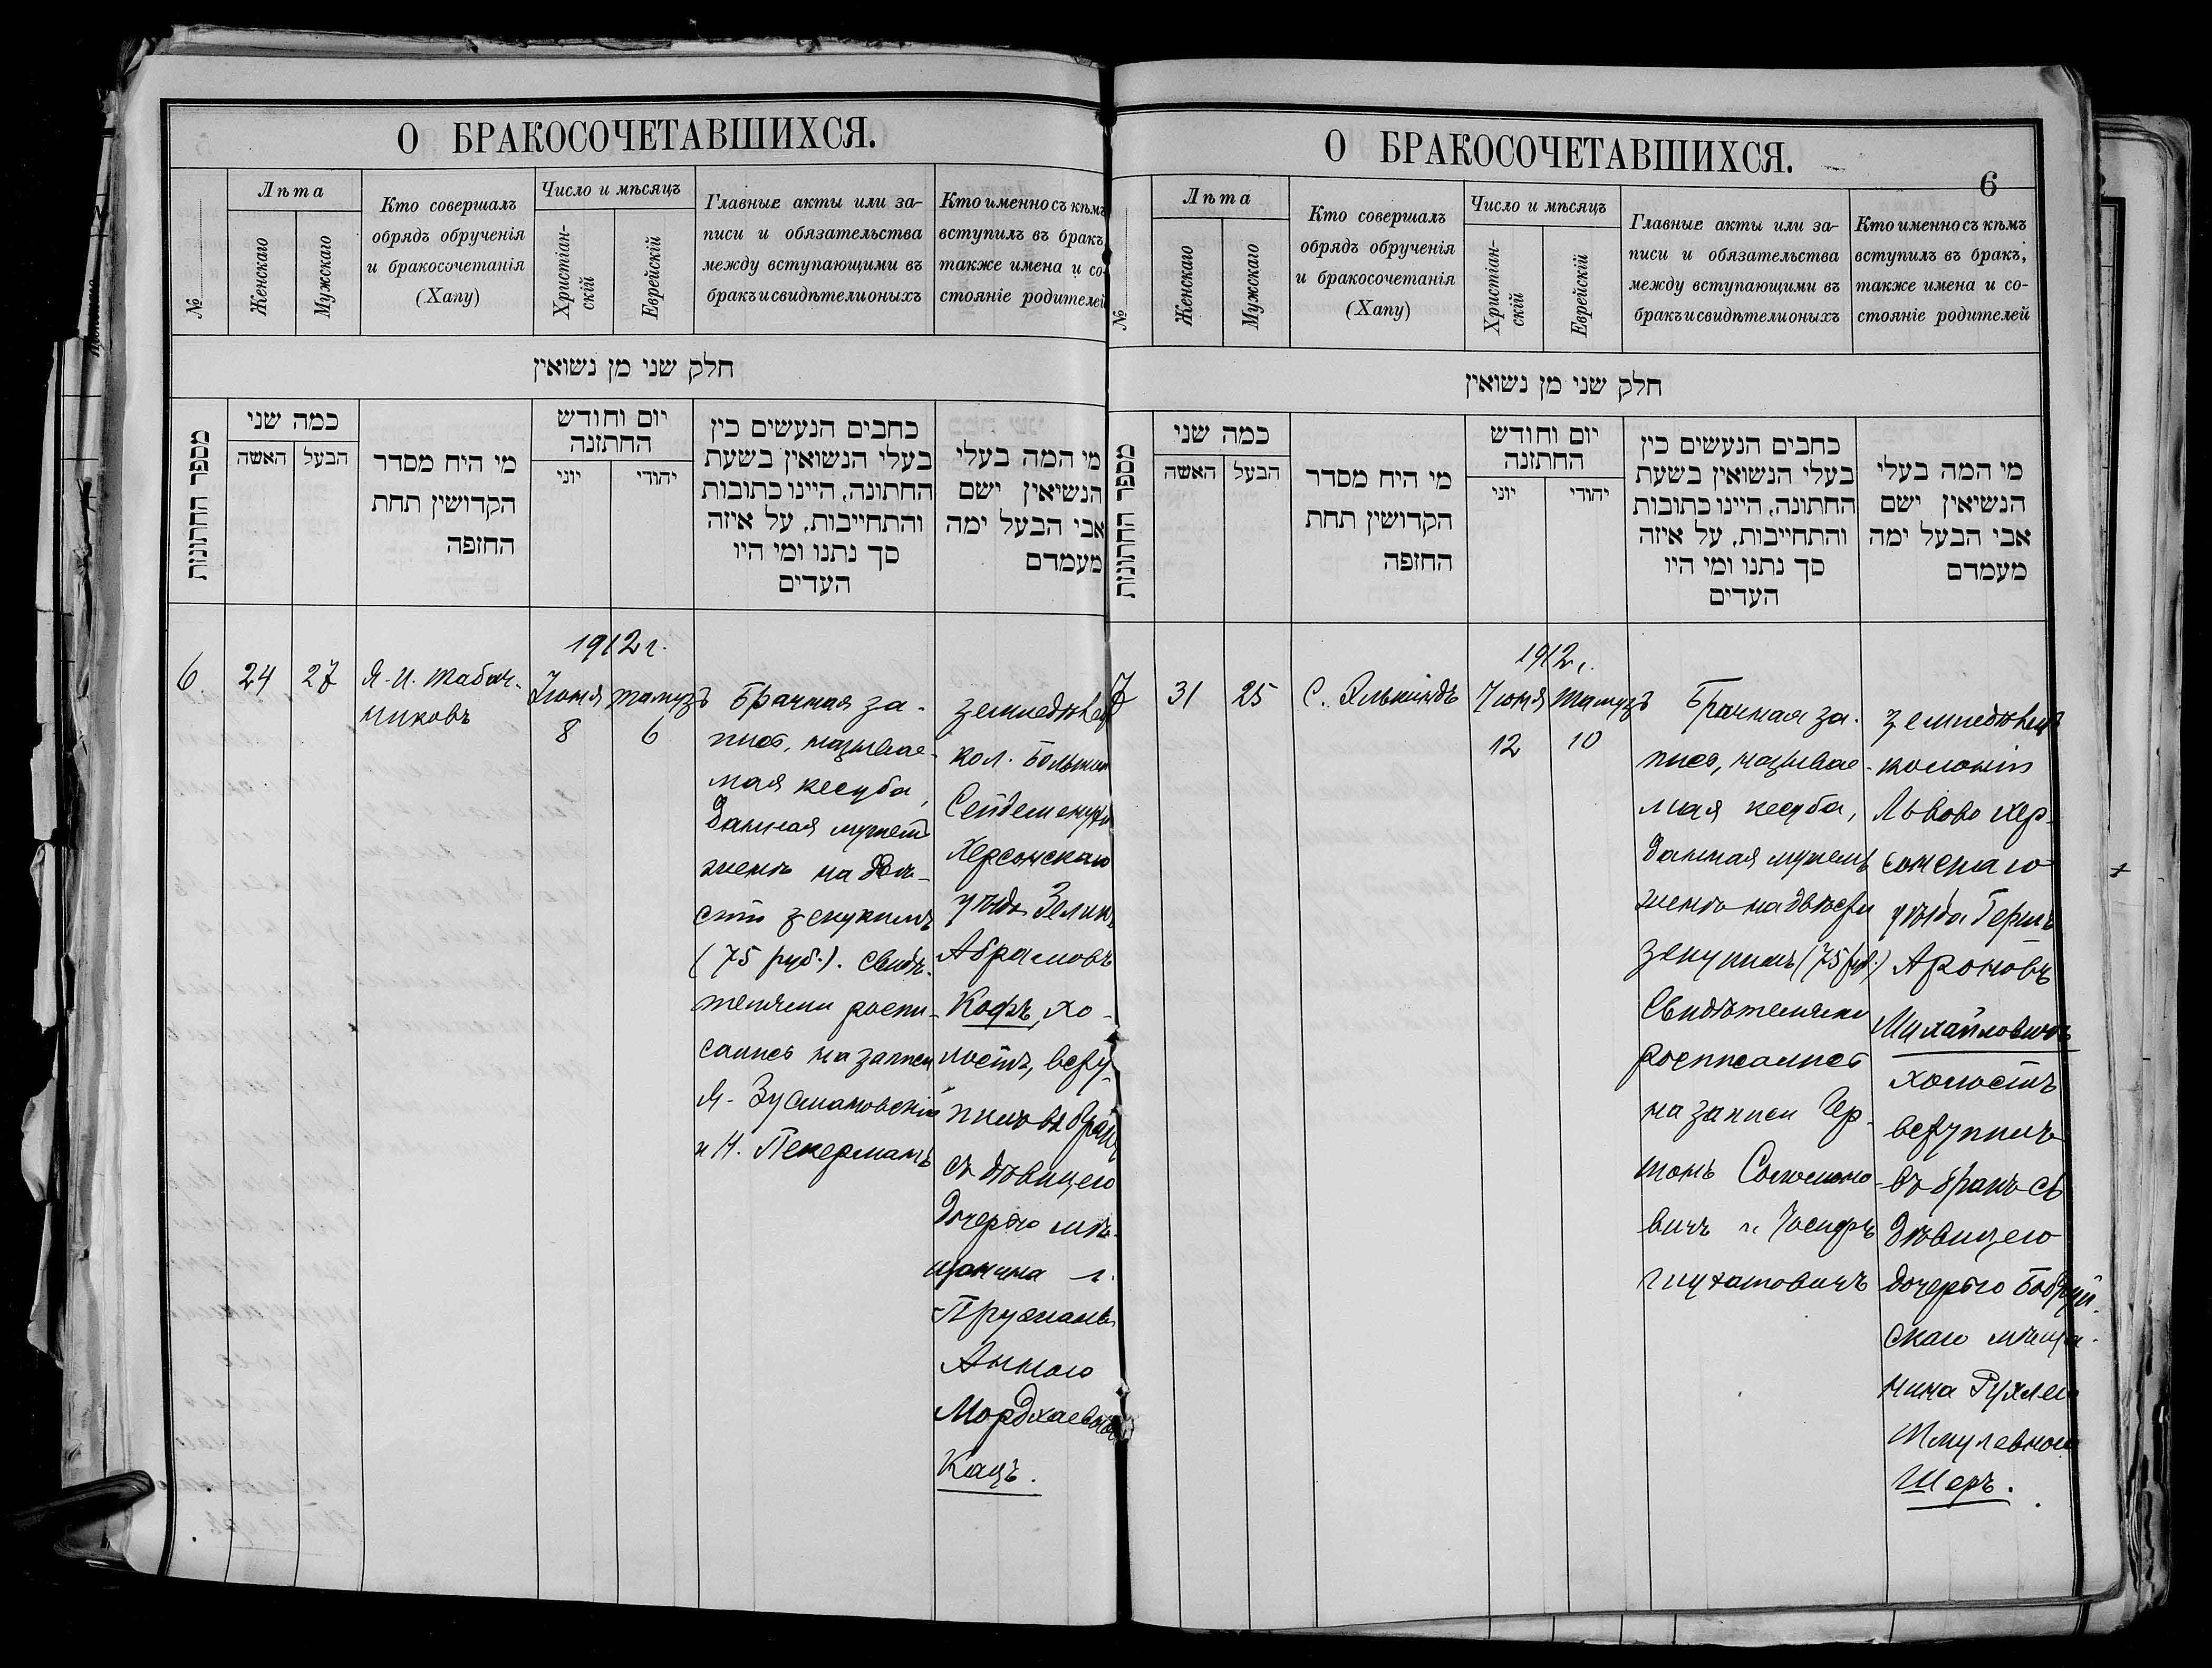 О БРАКОСОЧЕТАВШИХСЯ.
№
Лѣта
Женскаго
Мужскаго
Кто совершалъ
обрядъ обрученія
и бракосочетанія
(Хапу)
Число и мѣсяцъ
Христіан-
скій
Еврейскій
Главные акты или за-
писи и обязательства
между вступающими въ
бракъ и свидѣтели оныхъ
Кто именно съ кѣмъ
вступилъ въ бракъ,
также имена и со-
стояніе родителей
חלק שני מן נשואין
מספר החתונות
כמה שני
האשה
הבעל
מי היח מסדר
הקדושין תחת
החזפה
יום וחודש
החתזנה
יוני
יהודי
כחבים הנעשים כין
בעלי הנשואין בשעת
החתונה, היינו כתובות
והתחייבות, על איזה
סך נתנו ומי היו
העדים
מי המה בעלי
הנשיאין ישם
אבי הבעל ימה
מעמדם
1912 г.
6.
24
27
Я. И. Табач-
никовъ
Іюня
8
Тамузъ
6
Брачная за-
пись, называе-
мая кесуба,
данная мужемъ
женѣ на
сти зекукимъ
(75 руб.). Свидѣ-
телями роспи-
сались на записи
Я. Зусмановскій
и Н. Пекерманъ
земледѣлец
кол. Большой
Сейдеменухи
Херсонскаго
уѣзда Зелик
Абрамовъ
Кофъ, хо-
лостъ, всту-
пилъ въ бракъ
съ дѣвицею
дочерью мѣ-
щанина г.
Пружаны
Анною
Мордхаевною
Кацъ.
О БРАКОСОЧЕТАВШИХСЯ.
6
№
Лѣта
Женскаго
Мужскаго
Кто совершалъ
обрядъ обрученія
и бракосочетанія
(Хапу)
Число и мѣсяцъ
Христіан-
скій
Еврейскій
Главные акты или за-
писи и обязательства
между вступающими въ
бракъ и свидѣтели оныхъ
Кто именно съ кѣмъ
вступилъ въ бракъ,
также имена и со-
стояніе родителей
חלק שני מן נשואין
מספר החתונות
כמה שני
האשה
הבעל
מי היח מסדר
הקדושין תחת
החזפה
יום וחודש
החתזנה
יוני
יהודי
כחבים הנעשים כין
בעלי הנשואין בשעת
החתונה, היינו כתובות
והתחייבות, על איזה
סך נתנו ומי היו
העדים
מי המה בעלי
הנשיאין ישם
אבי הבעל ימה
מעמדם
1912 г.
7
31
25
С. Элькиндъ
Іюня
12
Тамузъ
10
Брачная за-
пись, называе-
мая кесуба,
данная мужемъ
женѣ на двѣсти
зекукимъ (75 руб.)
Свидѣтелями
росписались
на записи Гер-
шонъ Соломоно-
вичъ и Іосифъ
земледѣлецъ
колоніи
Львово Хер-
сонскаго
уѣзда Гершъ
Ароновъ
Михайловичъ
холостъ
вступилъ
въ бракъ съ
дѣвицею
дочерью Бобруй-
скаго мѣща-
нина Рухлею
Шмулевною
Шеръ.